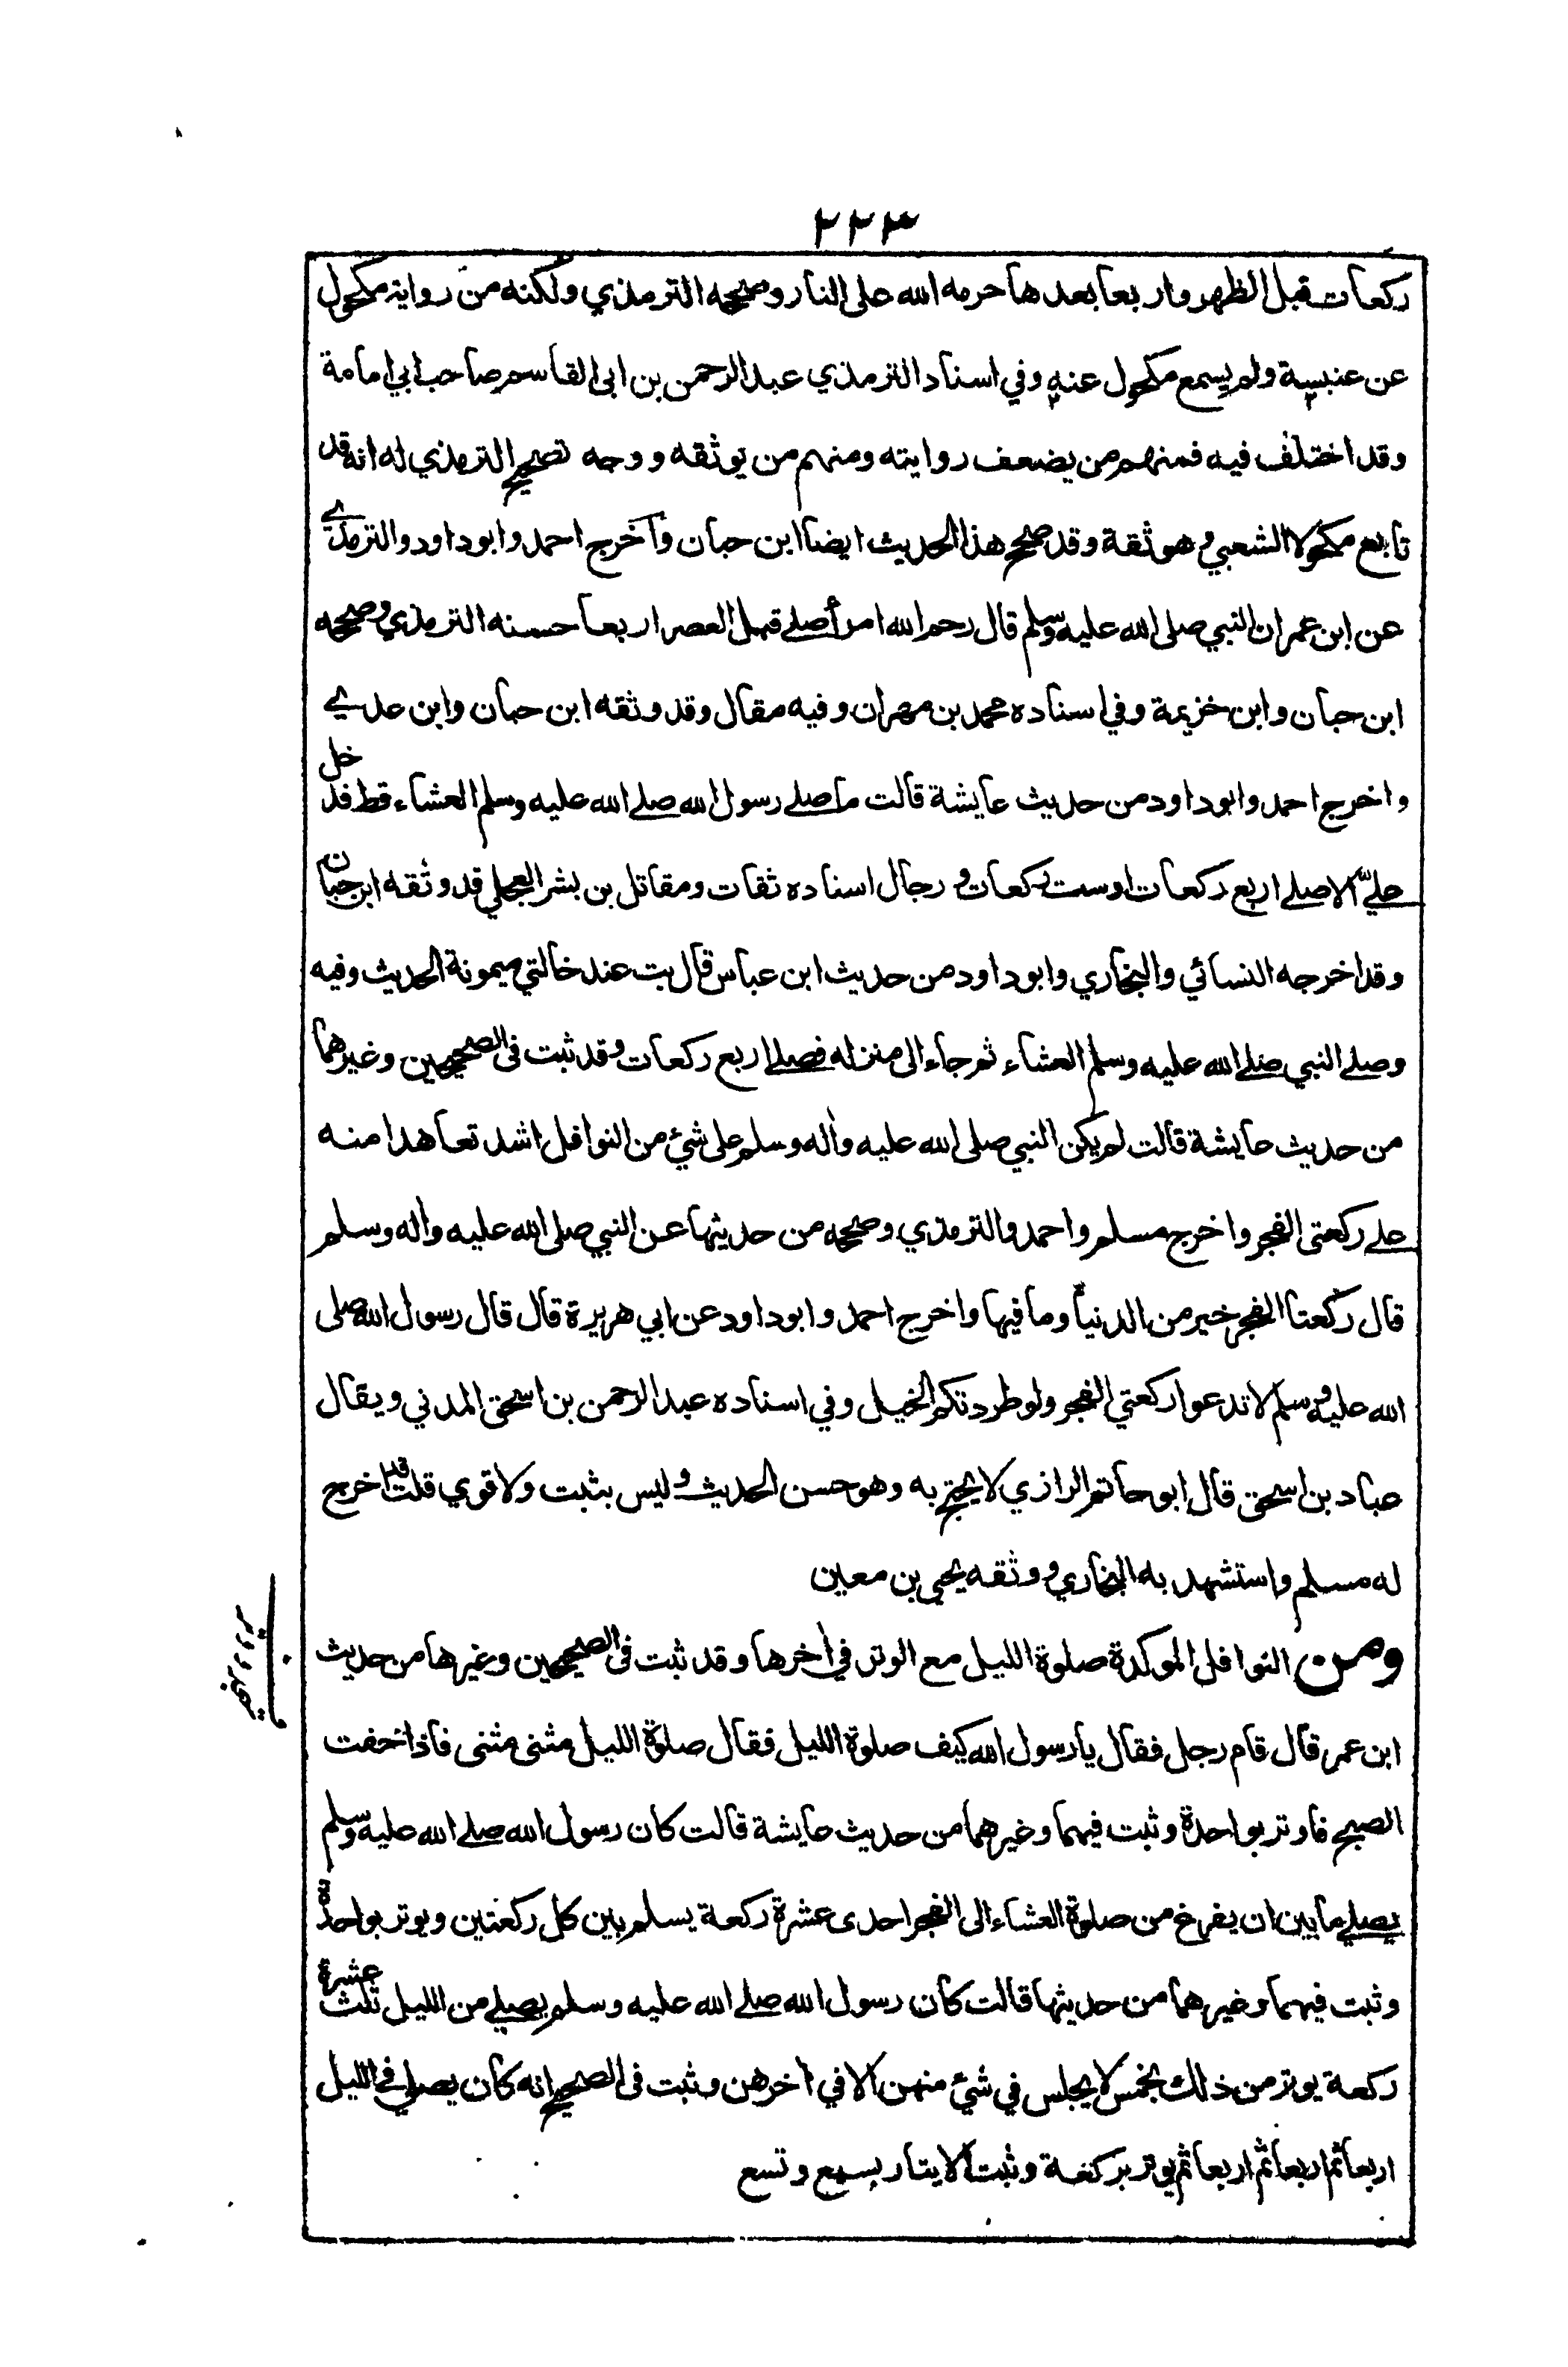 ٢٢٣
ركعات قبل الظهر واربعا بعدها حرمه الله على النار وصححه الترمذي ولكنه من رواية مكحول
عن عنبسة ولم يسمع مكحول عنه وفي اسناد الترمذي عبدالرحمن بن ابى القاسم صاحب ابي امامة
وقد اختلف فيه فمنهم من يضعف روايته ومنهم من يوثقه ووجه تصحيح الترمذي له انه قد
تابع مكحولا الشعبي وهو ثقة وقد صحح هذا الحديث ايضا ابن حبان وأخرج احمد وابوداود والترمذي
عن ابن عمر ان النبي صلى الله عليه وسلم قال رحم الله امرأ صلے قبل العصر اربعا حسنه الترمذي وصححه
ابن حبان وابن خزيمة وفي اسناده محمد بن مهران وفيه مقال وقد وثقه ابن حبان وابن عدي
واخرج احمد وابوداود من حديث عايشة قالت ما صلے رسول الله صلے الله عليه وسلم العشاء قط فدخل
علي الا صلے اربع ركعات اوست ركعات ورجال اسناده ثقات ومقاتل بن بشر العجلي قد وثقه ابن حبان
وقد اخرجه النسائي والبخاري وابوداود من حديث ابن عباس قال بت عند خالتي ميمونة الحديث وفيه
وصلے النبي صلے الله عليه وسلم العشاء ثم جاء الى منزله فصلے اربع ركعات وقد ثبت فى الصحيحين وغيرهما
من حديث عايشة قالت لم يكن النبي صلى الله عليه وأله وسلم على شئ من النوافل اشد تعاهدا منه
علے ركعتى الفجر واخرج مسلم واحمد والترمذي وصححه من حديثها عن النبي صلى الله عليه واله وسلم
قال ركعتا الفجر خير من الدنيا وما فيها واخرج احمد وابوداود عن ابي هريرة قال قال رسول الله صلى
الله عليه وسلم لا تدعوا ركعتي الفجر ولو طردتكم الخيل وفي اسناده عبدالرحمن بن اسحق المدني ويقال
عباد بن اسحق قال ابو حاتم الرازي لا يحتج به وهو حسن الحديث وليس بثبت ولا قوي قلت قد اخرج
له مسلم واستشهد به البخاري ووثقه يحيى بن معين
ومن النوافل الموكدة صلوة الليل مع الوتر في أخرها وقد ثبت فى الصحيحين وغيرها من حديث
ابن عمر قال قام رجل فقال يا رسول الله كيف صلوة الليل فقال صلوة الليل مثنى مثنى فاذا خفت
الصبح فاوتر بواحدة وثبت فيهما وغيرهما من حديث عايشة قالت كان رسول الله صلے الله عليه وسلم
يصلي ما بين ان يفرغ من صلوة العشاء الى الفجر احدى عشرة ركعة يسلم بين كل ركعتين ويوتر بواحدة
وثبت فيهما وغيرهما من حديثها قالت كان رسول الله صلے الله عليه وسلم يصلي من الليل ثلث عشرة
ركعة يوتر من ذلك بخمس لا يجلس في شئ منهن الا في أخرهن وثبت فى الصحيح انه كان يصلي فى الليل
اربعا ثم اربعا ثم اربعا ثم يوتر بركعة وثبت الايتار بسبع وتسع